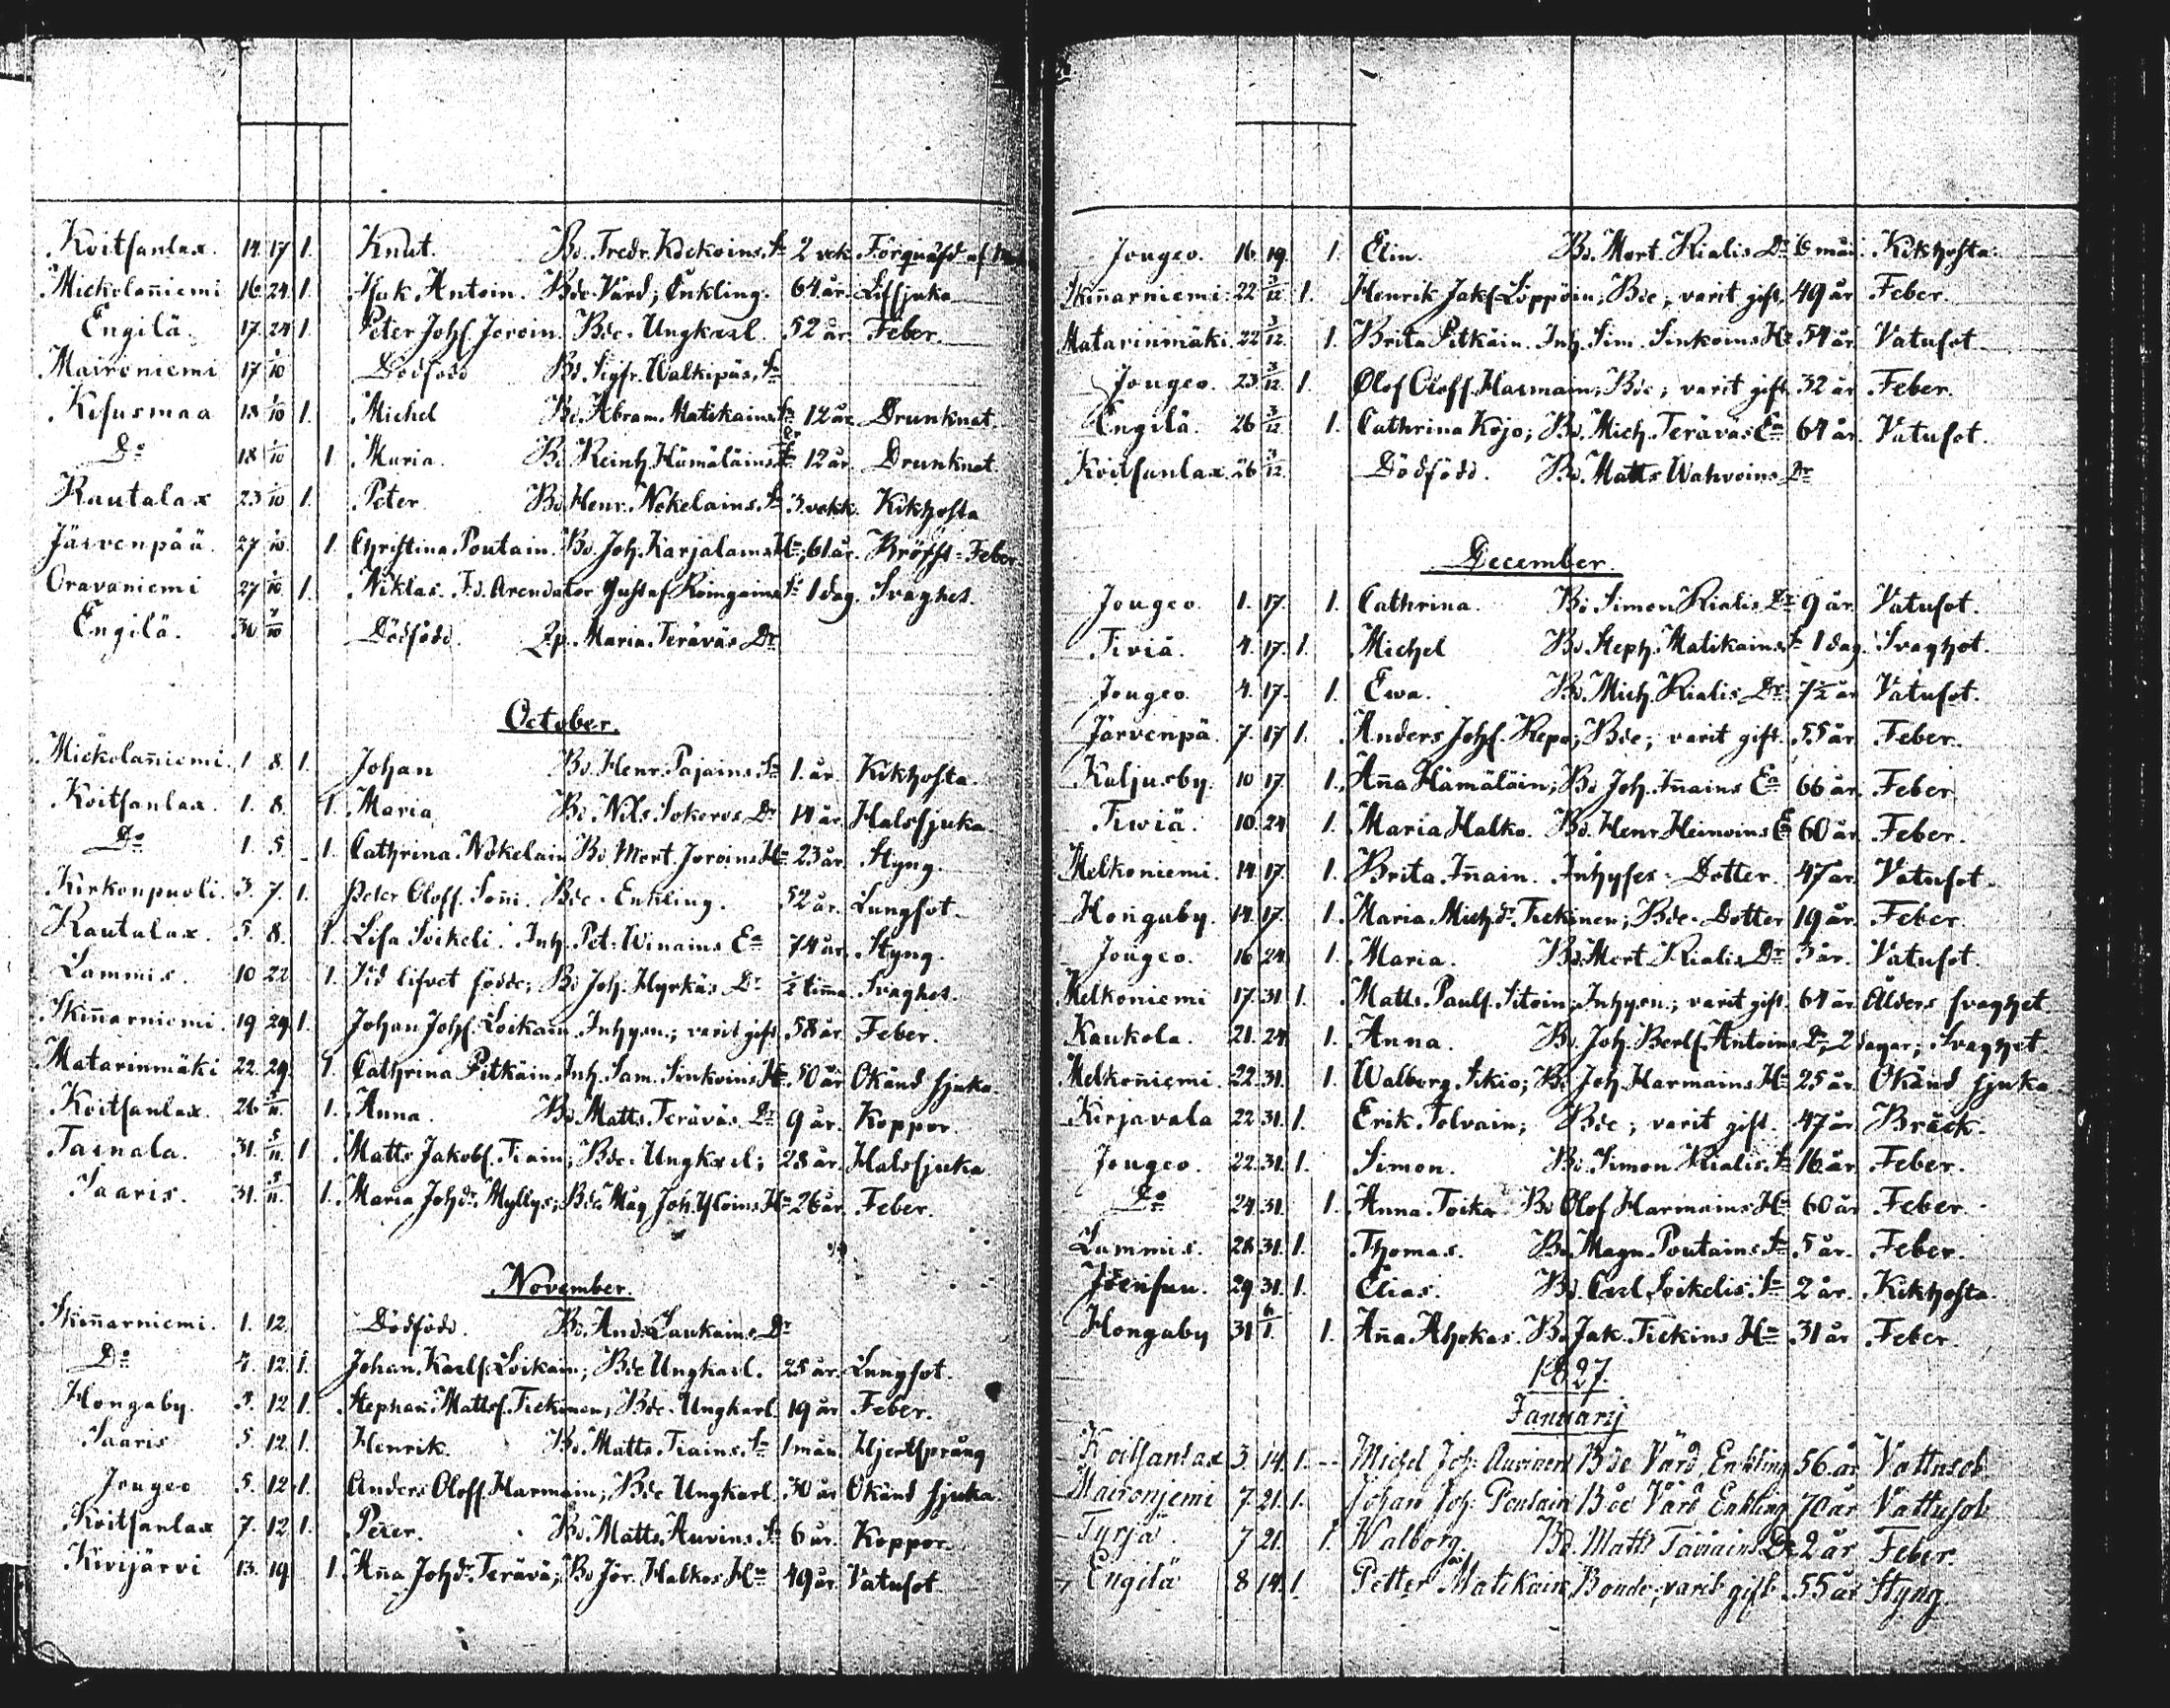 Koitsanlax. 14. 17. 1. Knut. Bd. Fredr. Kockoins Sn 2 vek. Förquäfd af
Mickolañiemi 16. 24. 1. Isak Antoin. Bde. Värd; Enkling. 64 år. Lifsjuka
Engilä. 17. 24. 1. Peter Johs. Joroin Bde. Ungkarl. 52 år. Feber.
Maironiemi 17 1/10 Dödfödd Bd. Sigfr. Walkepäs, Sn
Kesusmaa 18 1/10 1. Michel Bd. Abram. Matikains Sn 12 år Drunknat.
Do 18 1/10 1 Maria. Bd Reinh. Hämäläins Dr 12 år. Drunknat.
Rautalax 23 1/10 1. Peter Bd Henr. Nokelains. Sn 3. vekk. Kikhosta
Järvenpää. 27 1/10 1 Christina Poutain. Bd. Joh. Karjalains Ha; 61 år. Bröst-Feber
Oravaniemi 27 1/10 1. Niklas. Fd. Arendator Gustaf Roingains Sn 1 dag. Svaghet.
Engilä. 30 /10 Dödfödd. Pp. Maria Teräväs Dr
October.
Mickolañiemi. 1 8. 1. Johan Bd. Henr. Pajains Sn 1. år. Kikhosta.
Koitsanlax. 1. 8. 1. Maria Bd. Nils Sokeros Dr 14 år. Halssjuka.
Do 1. 5. 1. Cathrina Nokelain Bd Mort. Joroins Ha 23 år. Styng.
Kirkonpuoli. 3. 7. 1. Peter Oloff. Soñi. Bde. Enkling. 52 år. Lungsot.
Rautalax. 5. 8. 1. Lisa Soikeli. Inh. Pet. Winains Ea 74 år. Styng.
Lammis. 10 22 1. Vid lifvet födde; Bd Joh. Hyrkäs Dr ½ timma Svaghet.
Skiñarniemi. 19. 29. 1. Johan Johs. Loikain Inhysn.; varit gift. 58 år Feber.
Matarinmäki 22. 29. 1. Cathrina Pitkäin Inh. Sam. Sinkoins Ha 50 år Okänd sjuka.
Koitsanlax. 26 5/11. 1. Anna. Bd. Matts. Teräväs Dr 9 år. Koppor.
Tarnala. 31. 5/11. 1 Matts Jakobs. Tiain; Bde. Ungkarl; 28 år. Halssjuka
Saaris. 31. 5/11. 1. Maria Johdr. Myllys; Bde. Mag Joh. Yloins Ha 26 år. Feber.
November.
Skiñarniemi. 1. 12. Dödfödd. Bd. And. Laukains Dr
Do 4. 12. 1. Johan Karls. Loikain; Bde Ungkarl. 25 år. Lungsot.
Hongaby. 3. 12 1. Stephan Matts. Tiekinen; Bde. Ungkarl. 19 år Feber.
Saaris 5. 12. 1. Henrik. Bd. Matts Tiains Sn 1 mån. Hjertsprång
Jougeo 5. 12. 1. Anders Oloff. Harmain; Bde Ungkarl 30 år Okänd sjuka.
Koitsanlax 7. 12. 1. Peter. Bd. Matts. Auvins Sn 6 år. Koppor.
Kivijärvi 13. 19. 1. Aña Johdr. Terävä; Bd Jör. Halkos Ha 49 år. Vatusot.
Jougeo. 16. 19. 1. Elin. Bd. Mort. Rialis Dr 6 mån. Kikhosta.
Skiñarniemi. 22 3/12 1. Henrik Jaks. Loppöin; Bde; varit gift. 49 år Feber.
Matarinmäki. 22 3/12 1. Brita Pitkäin. Inh. Sim. Sinkoins Ha 54 år. Vatusot.
Jougeo. 23. 3/12 1. Olof Oloff. Harmain; Bde; varit gift. 32 år Feber.
Engilä. 26 3/12 1. Cathrina Kojo; Bd. Mich. Teräväs Ea 64 år. Vatusot.
Koitsanlax 26 3/12. Dödfödd. Bd. Matts Wahvoins Dr
December.
Jougeo. 1. 17. 1. Cathrina. Bd Simon Rialis Dr 9 år. Vatusot.
Tiviä. 4. 17. 1. Michel Bd Steph. Matikains Sn 1 dag. Svaghet.
Jougeo. 4. 17. 1. Ewa. Bd. Mich. Rialis Dr 7½ år Vatusot.
Järvenpä. 7. 17 1. Anders Johs. Repo; Bde; varit gift. 55 år Feber.
Kuljusby. 10 17. 1. Aña Hämäläin; Bd Joh. Iñains Ea 66 år. Feber
Tiviä. 10. 24 1. Maria Halko. Bd. Henr. Heinoins Ea 60 år Feber.
Melkoniemi. 14. 17. 1. Brita Iñain. Inhyses-Dotter. 47 år Vatusot.
Hongaby. 14. 17. 1. Maria Michdr. Tiekinen; Bde-Dotter 19 år. Feber.
Jougeo. 16. 24. 1. Maria. Bd. Mort. Rialis Dr 3 år. Vatusot.
Melkoniemi 17. 31. 1. Matts Pauls. Sitoin; Inhysn.; varit gift. 64 år. Ålders svaghet.
Kaukola. 21. 24. 1. Anna. Bd. Joh. Berls. Antoins Dr, 2 dagar; Svaghet.
Melkoniemi. 22. 31. 1. Walborg Sikio; Bd Joh. Harmains Ha 25 år. Okänd sjuka.
Kirjavala 22. 31. 1. Erik Tolvain; Bde; varit gift. 47 år Bråck.
Jougeo. 22. 31. 1. Simon. Bd. Simon Rialis Sn 16 år. Feber.
Do 24. 31. 1. Anna Toika. Bd Olof Harmains Ha 60 år Feber.
Lammis. 28. 31. 1. Thomas. Bd. Magn. Poutains Sn 5 år. Feber.
Joensun. 29. 31. 1. Elias. Bd. Carl Soikelis Sn 2 år. Kikhosta.
Hongaby 31 6/1. 1. Aña Ahokas. Bd Jak. Tiekins Ha 31 år Feber.
1827.
Januarij
Koitsanlax 3. 14. 1. Michel Joh: Auvinen Bde Värd, Enkling 56 år Vattusot
Maironjemi 7. 21. 1. Johan Joh: Poutain Bde Värd Enkling 70 år Vattusot
Tyrjä. 7 21. 1. Walborg. Bd. Matts Täviains Dr 2 år Feber.
Engilä 8 14. 1. Petter Matikain Bonde, varit gift. 55 år Styng.